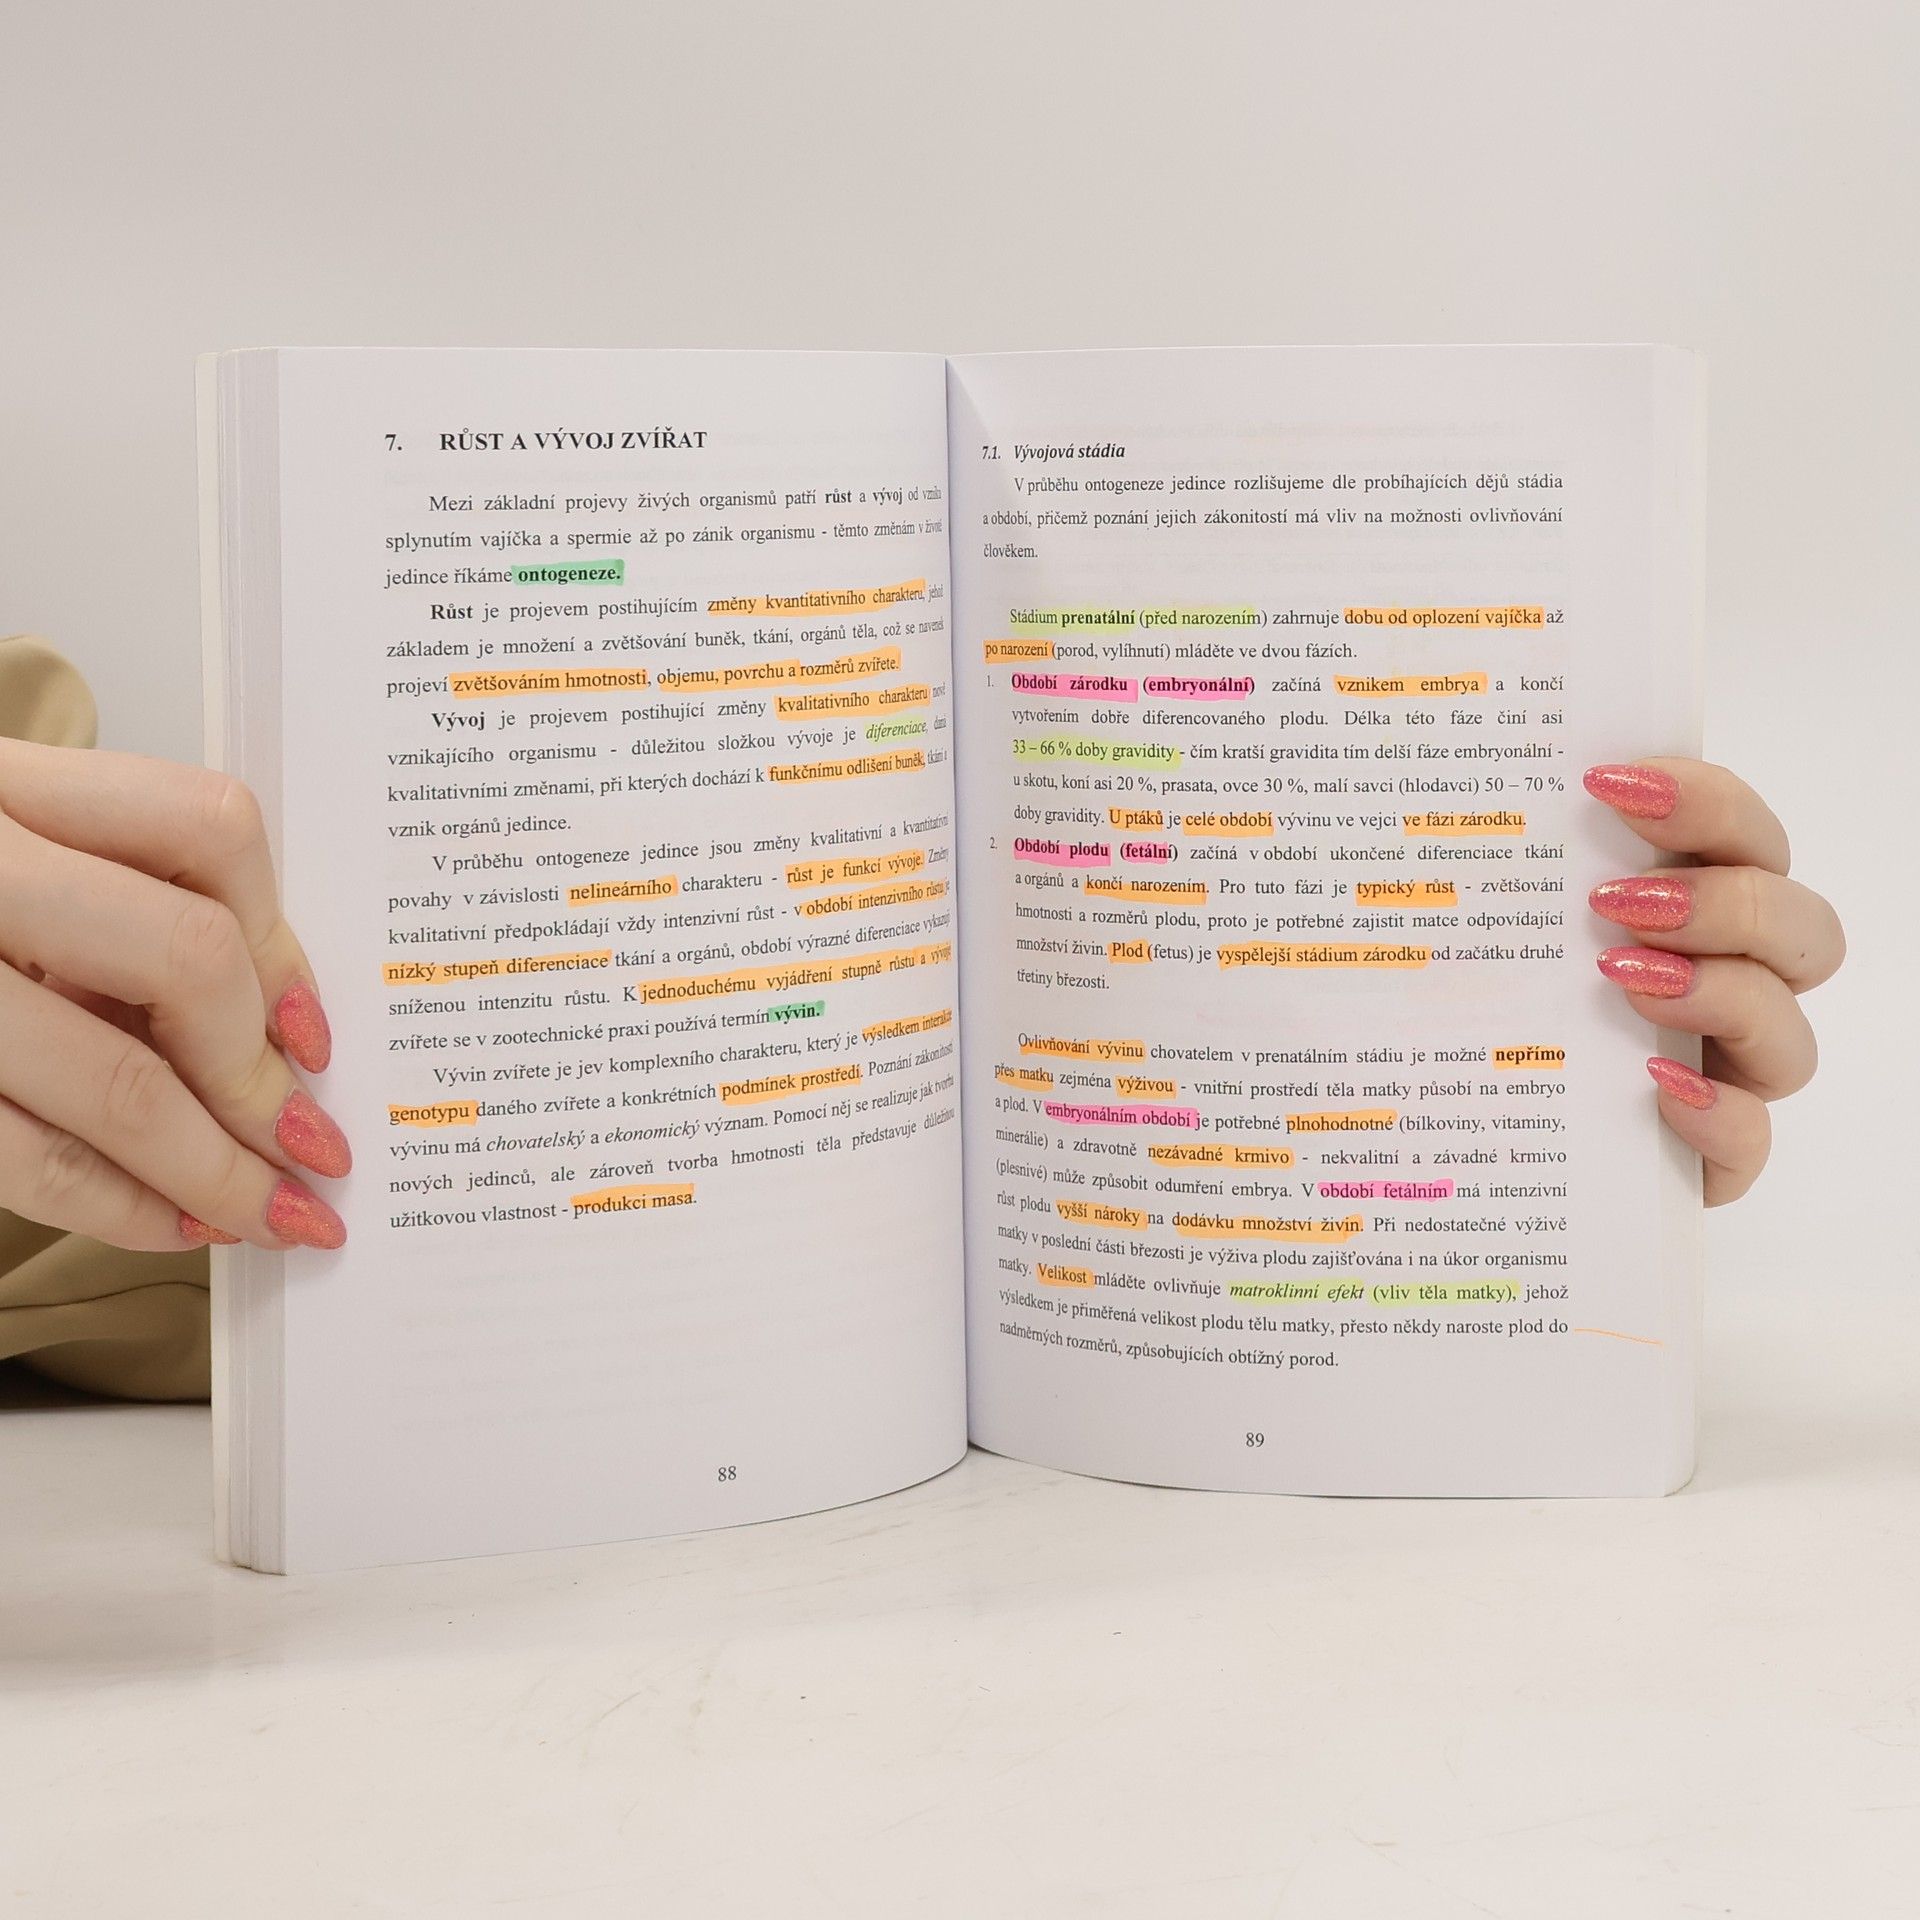 7. RŮST A VÝVOJ ZVÍŘAT
Mezi základní projevy živých organismů patří růst a vývoj od vzniku
splynutím vajíčka a spermie až po zánik organismu - těmto změnám v životě
jedince říkáme ontogeneze.
Růst je projevem postihujícím změny kvantitativního charakteru, jehož
základem je množení a zvětšování buněk, tkání, orgánů těla, což se navenek
projeví zvětšováním hmotnosti, objemu, povrchu a rozměrů zvířete.
Vývoj je projevem postihující změny kvalitativního charakteru nově
vznikajícího organismu - důležitou složkou vývoje je diferenciace, daná
kvalitativními změnami, při kterých dochází k funkčnímu odlišení buněk, tkání a
vznik orgánů jedince.
V průběhu ontogeneze jedince jsou změny kvalitativní a kvantitativní
povahy v závislosti nelineárního charakteru - růst je funkcí vývoje. Změny
kvalitativní předpokládají vždy intenzivní růst - v období intenzivního růstu je
nízký stupeň diferenciace tkání a orgánů, období výrazné diferenciace vykazují
sníženou intenzitu růstu. K jednoduchému vyjádření stupně růstu a vývoje
zvířete se v zootechnické praxi používá termín vývin.
Vývin zvířete je jev komplexního charakteru, který je výsledkem interakce
genotypu daného zvířete a konkrétních podmínek prostředí. Poznání zákonitostí
vývinu má chovatelský a ekonomický význam. Pomocí něj se realizuje jak tvorba
nových jedinců, ale zároveň tvorba hmotnosti těla představuje důležitou
užitkovou vlastnost - produkci masa.
88
7.1. Vývojová stádia
V průběhu ontogeneze jedince rozlišujeme dle probíhajících dějů stádia
a období, přičemž poznání jejich zákonitostí má vliv na možnosti ovlivňování
člověkem.
Stádium prenatální (před narozením) zahrnuje dobu od oplození vajíčka až
po narození (porod, vylíhnutí) mláděte ve dvou fázích.
1. Období zárodku (embryonální) začíná vznikem embrya a končí
vytvořením dobře diferencovaného plodu. Délka této fáze činí asi
33 – 66 % doby gravidity - čím kratší gravidita tím delší fáze embryonální -
u skotu, koní asi 20 %, prasata, ovce 30 %, malí savci (hlodavci) 50 – 70 %
doby gravidity. U ptáků je celé období vývinu ve vejci ve fázi zárodku.
2. Období plodu (fetální) začíná v období ukončené diferenciace tkání
a orgánů a končí narozením. Pro tuto fázi je typický růst - zvětšování
hmotnosti a rozměrů plodu, proto je potřebné zajistit matce odpovídající
množství živin. Plod (fetus) je vyspělejší stádium zárodku od začátku druhé
třetiny březosti.
Ovlivňování vývinu chovatelem v prenatálním stádiu je možné nepřímo
přes matku zejména výživou - vnitřní prostředí těla matky působí na embryo
a plod. V embryonálním období je potřebné plnohodnotné (bílkoviny, vitaminy,
minerálie) a zdravotně nezávadné krmivo - nekvalitní a závadné krmivo
(plesnivé) může způsobit odumření embrya. V období fetálním má intenzivní
růst plodu vyšší nároky na dodávku množství živin. Při nedostatečné výživě
matky v poslední části březosti je výživa plodu zajišťována i na úkor organismu
matky. Velikost mláděte ovlivňuje matroklinní efekt (vliv těla matky), jehož
výsledkem je přiměřená velikost plodu tělu matky, přesto někdy naroste plod do
nadměrných rozměrů, způsobujících obtížný porod.
89